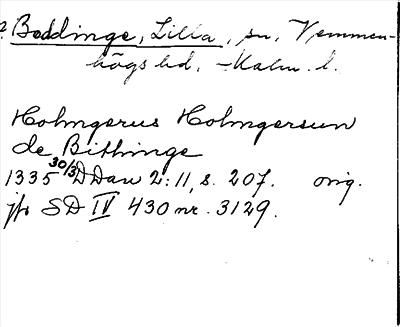 Boddinge, Lilla, sn, Vemmen-
högs hd, Malm. l.
Holmgerus Holmgersun
de Bithinge
1335 30/3 DDan 2:11, s. 207. orig.
jfr SD IV 430 nr. 3129.